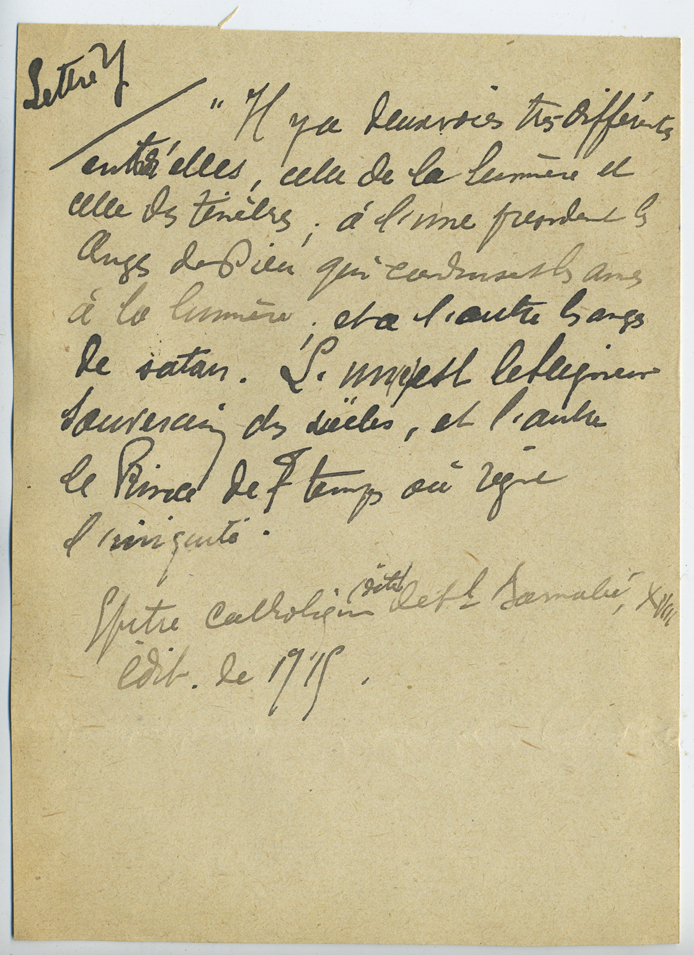 Lettre Y
" Il y a deux voies très différentes
entr'elles, celle de la lumière et
celle des ténèbres ; à l'une président les
Anges de Dieu qui conduisent les ames
à la lumière ; et a l'autre les anges
de satan. L'un est le Seigneur
Souverain des siècles, et l'autre
le Prince de temps où règne
l'iniquité.
Epitre catholique (dite) de St Barnabé, XVIII
édit. de 1715.